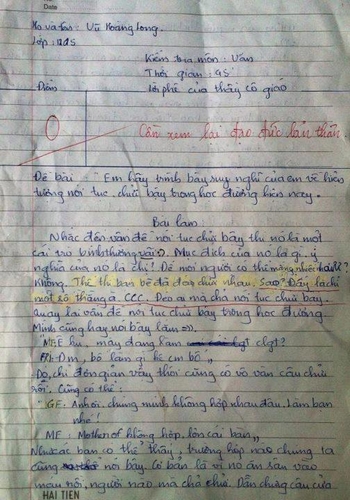 Date
Họ và tên: Vũ Hoàng Long.
Lớp: 12A5
Kiểm tra môn: Văn
Thời gian: 45'
Điểm
Lời phê của thầy cô giáo
0
Cần xem lại đạo đức bản thân.
Đề bài: "Em hãy trình bày suy nghĩ của em về hiện
tượng nói tục, chửi bậy trong học đường hiện nay.
Bài làm
Nhắc đến vấn đề nói tục chửi bậy thì nó là một
cái rất bình thường vãi :)). Mục đích của nó là gì, ý
nghĩa của nó là chi! Để mọi người có thể mắng nhiếc
Không. Thế thì bạn bè đã đớp chửi nhau. Sao? Đấy là chỉ
một số thằng á. CCC. Đéo ai mà cha nói tục chửi bậy.
Quay lại vấn đề nói tục chửi bậy trong học đường.
Mình cũng hay nói bậy lắm =)).
hu, mày đang làm clgt?
Đm, bố làm gì kệ em bố
Đó, chỉ đơn giản vậy thôi cũng có vô vàn câu chửi
rồi. Cũng có thể:
GF: Anh ơi, chúng mình không hợp nhau đâu. Làm bạn
nhé!
MF: Mother of không hợp, lồn cái bạn
Như các bạn có thể thấy, trường hợp nào chúng ta
cũng nói bậy. Cơ bản là vì nó ăn sâu vào
máu rồi, người nào mà chả chửi. Dẫn chứng của
HAI TIEN